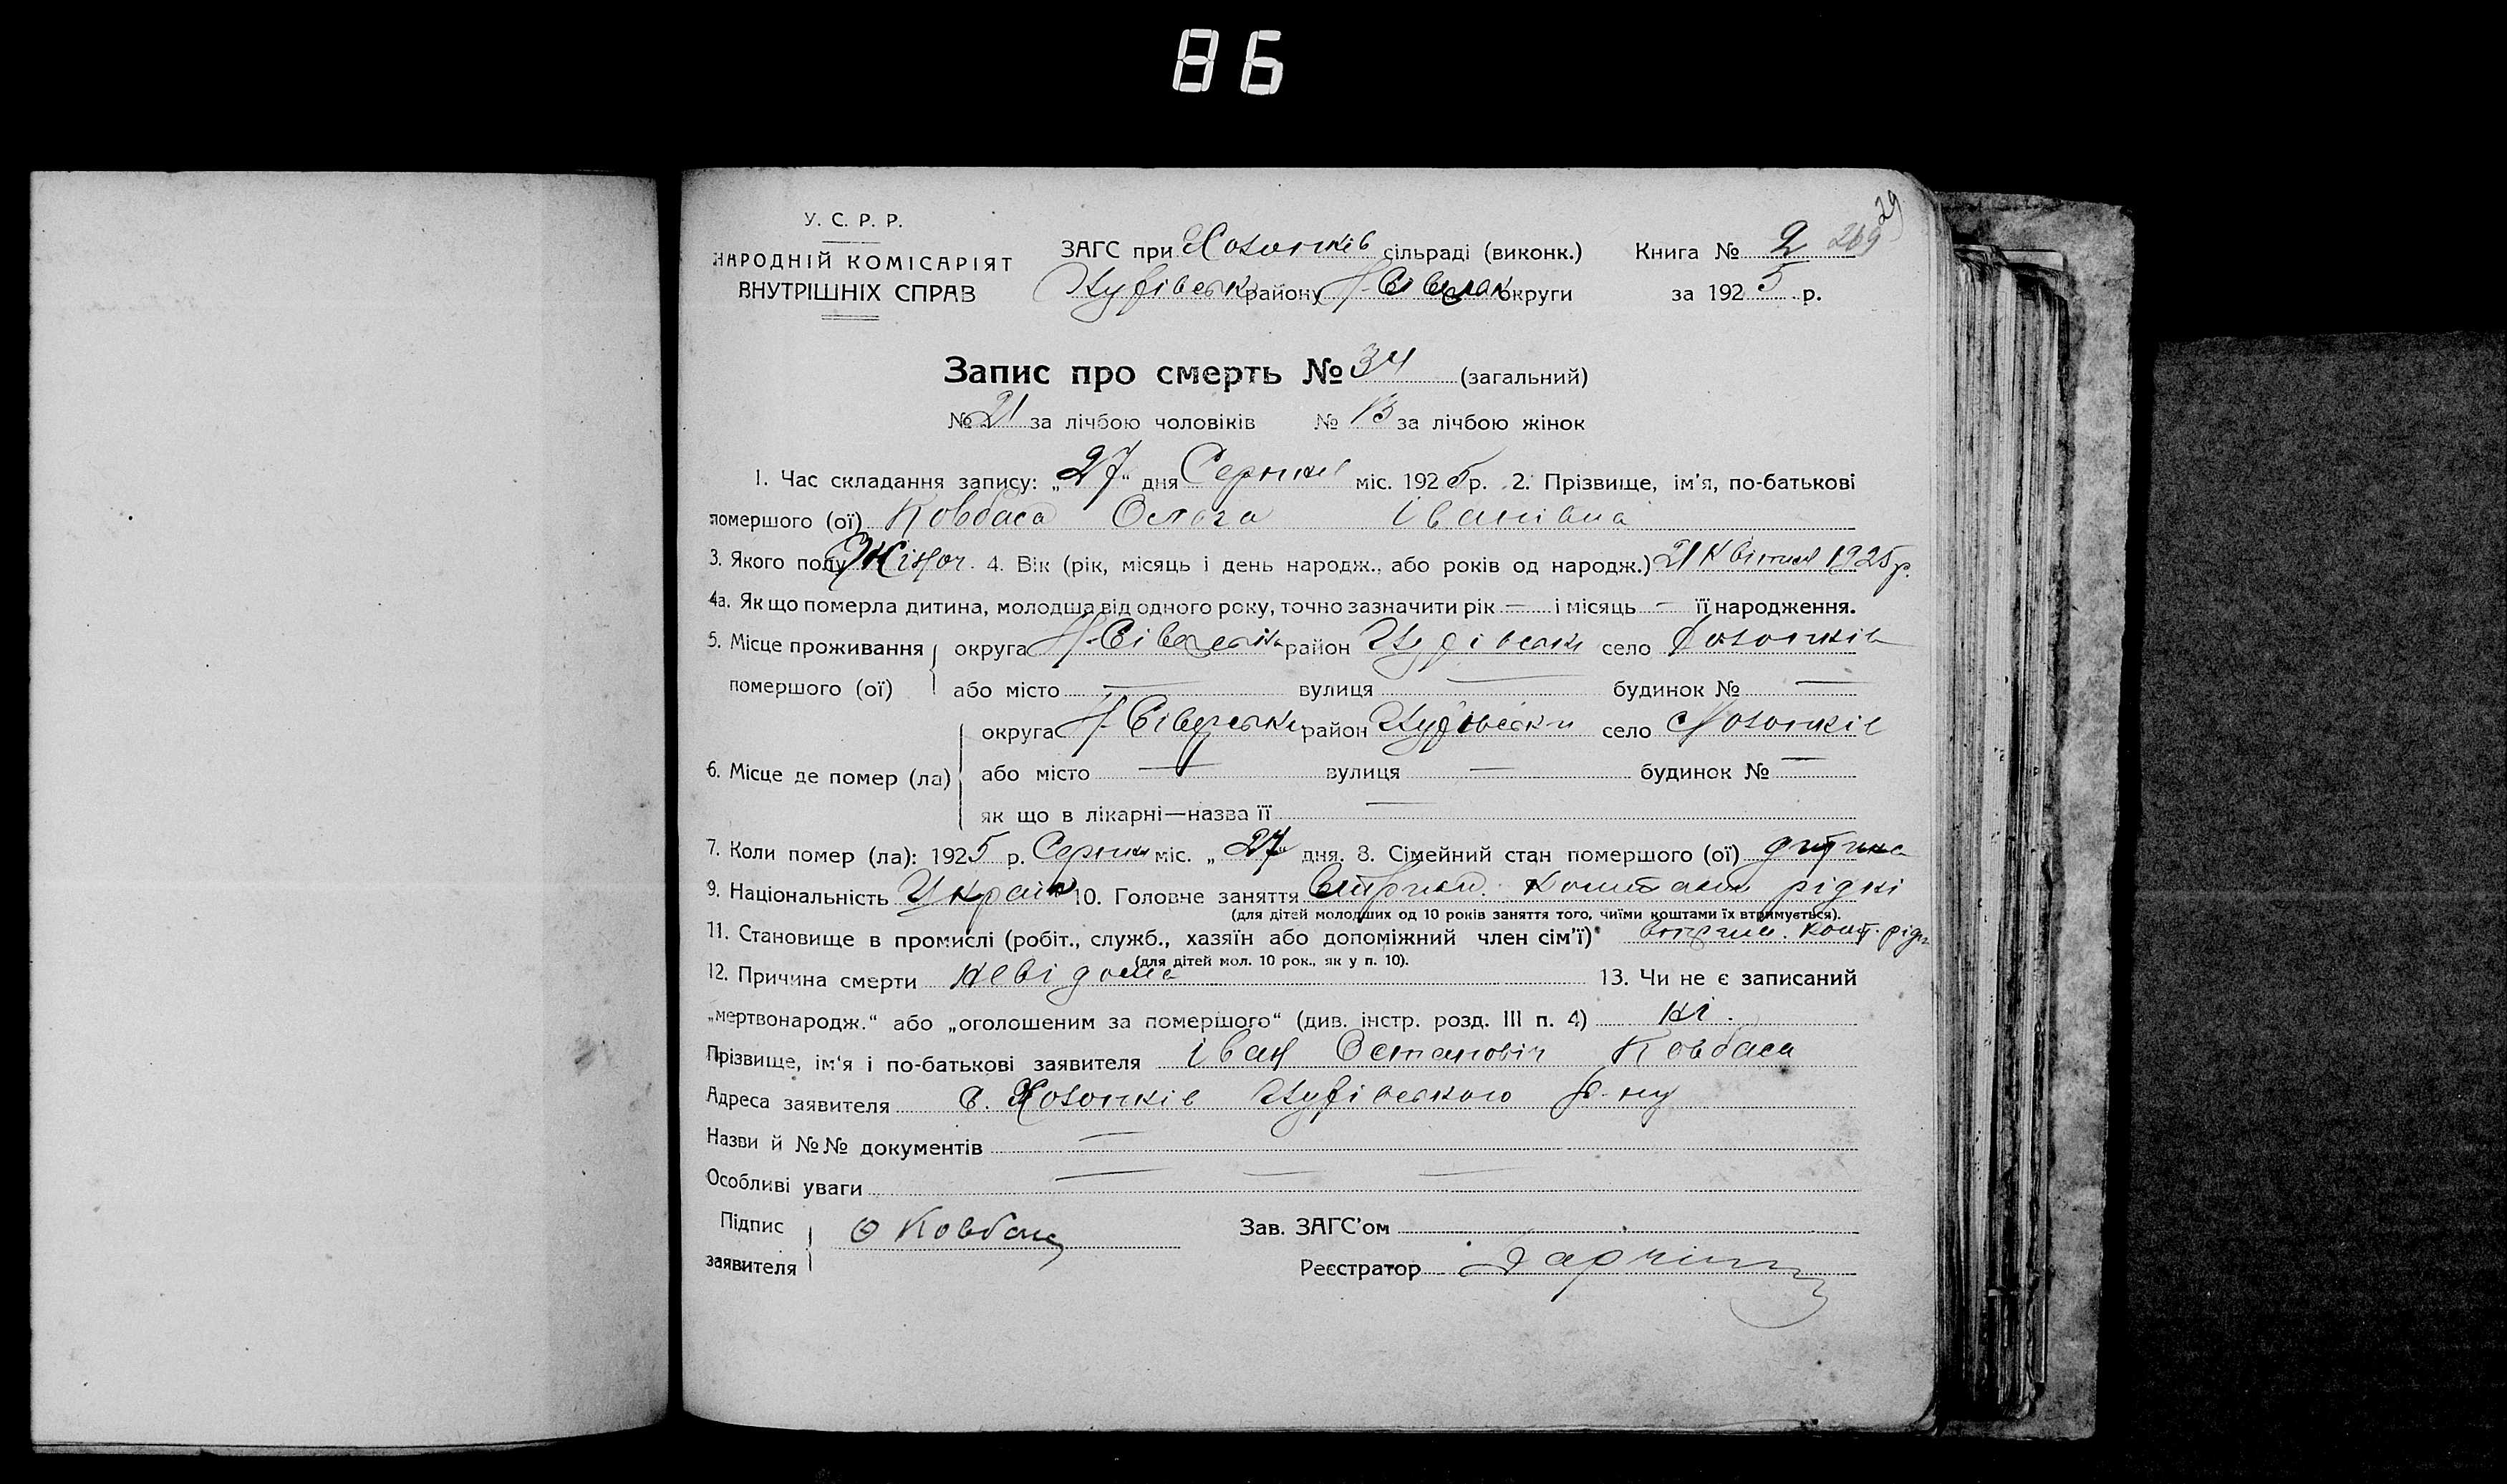 86
29
269
У. С. Р. Р.
НАРОДНІЙ КОМІСАРІЯТ
ВНУТРІШНІХ СПРАВ
ЗАГС при сільраді (виконк.)
району округи
Книга № 2
за 1925 р.
Запис про смерть № 34 (загальний)
№ 21 за лічбою чоловіків № 13 за лічбою жінок
1. Час складання запису: „27“ дня Серпня міс. 1925 р. 2. Прізвище, ім'я, по-батькові
помершого (ої) Ковбаса Ольга Іванівна
3. Якого полу Жіноч. 4. Вік (рік, місяць і день народж., або років од народж.) 21 Квітня 1925 р.
4а. Як що померла дитина, молодша від одного року, точно зазначити рік — і місяць — її народження.
5. Місце проживання округа Н-Сіверськ район село
помершого (ої) або місто — вулиця — будинок № —
округа Н-Сіверськ район село
6. Місце де помер (ла) або місто — вулиця — будинок № —
як що в лікарні—назва її —
7. Коли помер (ла): 1925 р. Серпня міс. „27“ дня. 8. Сімейний стан помершого (ої) дитина
9. Національність Україн 10. Головне заняття втрим. коштами рідні
(для дітей молодших од 10 років заняття того, чиїми коштами їх втримується).
11. Становище в промислі (робіт., служб., хазяїн або допоміжний член сім'ї) втрим. кошт. рідн
(для дітей мол. 10 рок., як у п. 10).
12. Причина смерти невідома 13. Чи не є записаний
„мертвонародж.“ або „оголошеним за помершого“ (див. інстр. розд. III п. 4) ні.
Прізвище, ім'я і по-батькові заявителя Іван Остапович Ковбаса
Адреса заявителя с. р-ну
Назви й №№ документів —
Особливі уваги — — —
Підпис
заявителя Ковбаса
Зав. ЗАГС'ом
Реєстратор